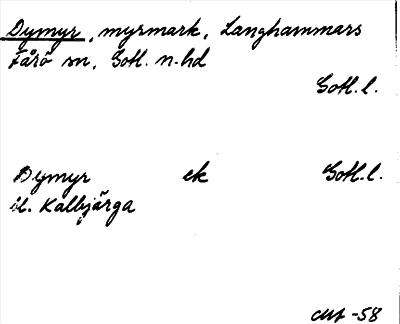 Dymyr, myrmark, Langhammars
Fårö sn, Gotl. n. hd
Gotl. l.
Dymyr ek Gotl. l.
il. Kalbjärga
-58